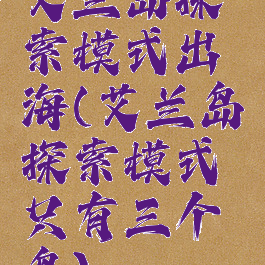 艾兰岛探
索模式出
海(艾兰岛
探索模式
只有三个
岛)